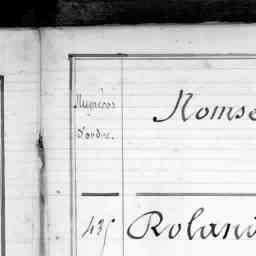 Numéros
d'ordre.
Noms
435
Roland